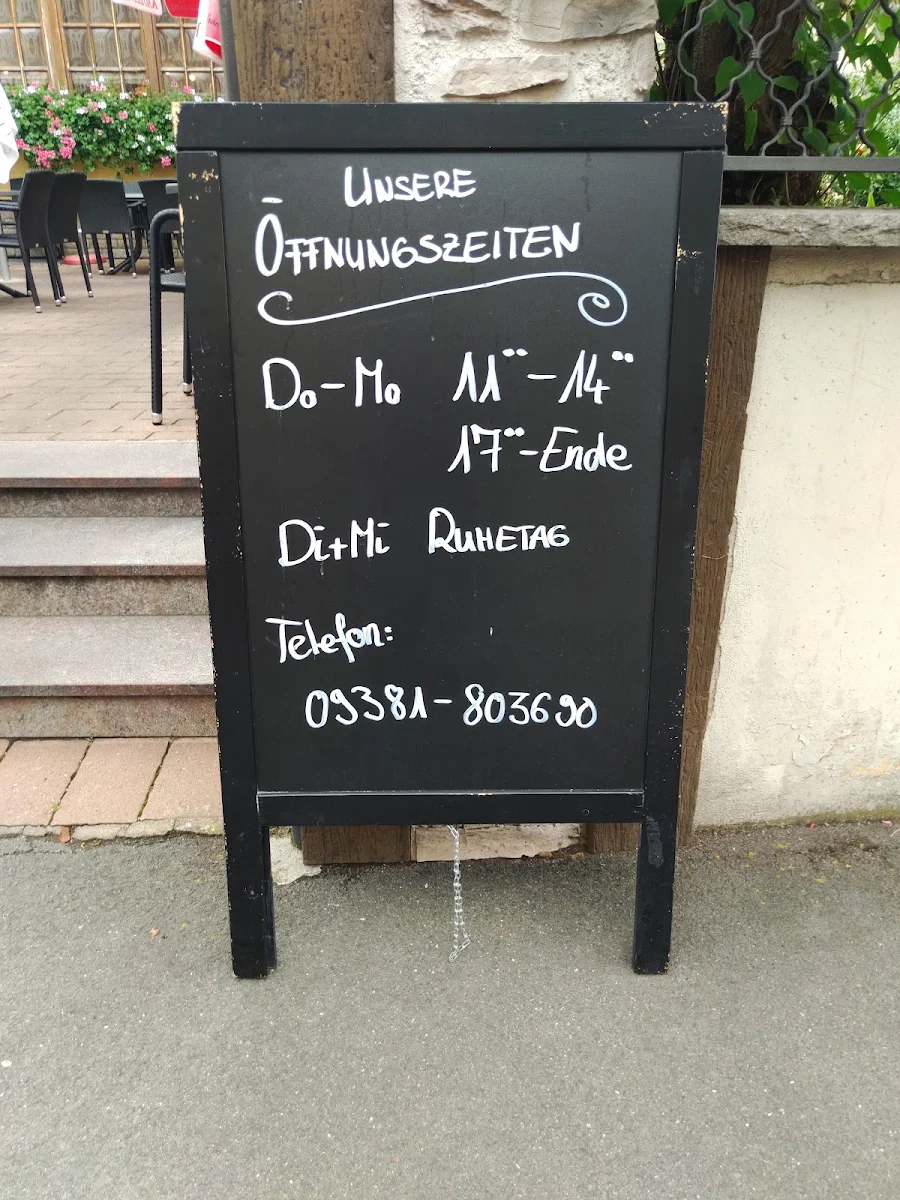 UNSERE
ÖFFNUNGSZEITEN
Do-Mo 11°°-14°°
17°°-Ende
Di+Mi RUHETAG
Telefon:
09381-803690